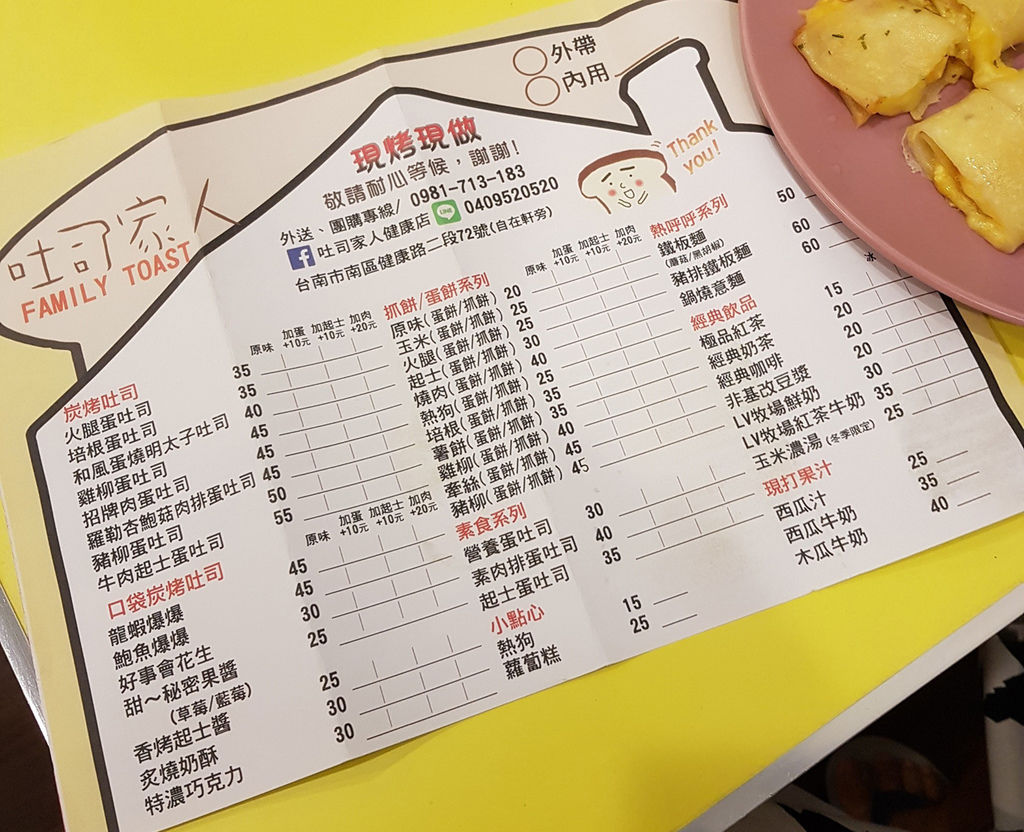 外帶
內用
吐司家人
FAMILY TOAST
現烤現做
敬請耐心等候，謝謝！
外送、團購專線/ 0981-713-183
吐司家人健康店 LINE 0409520520
台南市南區健康路二段72號(自在軒旁)
Thank you!
原味 加蛋+10元 加起士+10元 加肉+20元
炭烤吐司
火腿蛋吐司 35
培根蛋吐司 35
和風蛋燒明太子吐司 40
雞柳蛋吐司 45
招牌肉蛋吐司 45
羅勒杏鮑菇肉排蛋吐司 45
豬柳蛋吐司 50
牛肉起士蛋吐司 55
原味 加蛋+10元 加起士+10元 加肉+20元
口袋炭烤吐司
龍蝦爆爆 45
鮑魚爆爆 45
好事會花生 30
甜～秘密果醬 25
(草莓/藍莓)
香烤起士醬 25
炙燒奶酥 30
特濃巧克力 30
原味 加蛋+10元 加起士+10元 加肉+20元
抓餅/蛋餅系列
原味(蛋餅/抓餅) 20
玉米(蛋餅/抓餅) 25
火腿(蛋餅/抓餅) 25
起士(蛋餅/抓餅) 30
燒肉(蛋餅/抓餅) 40
熱狗(蛋餅/抓餅) 25
培根(蛋餅/抓餅) 35
薯餅(蛋餅/抓餅) 35
雞柳(蛋餅/抓餅) 40
牽絲(蛋餅/抓餅) 45
豬柳(蛋餅/抓餅) 45
素食系列
營養蛋吐司 30
素肉排蛋吐司 40
起士蛋吐司 35
小點心
熱狗 15
蘿蔔糕 25
熱呼呼系列
鐵板麵 50
(蘑菇/黑胡椒)
豬排鐵板麵 60
鍋燒意麵 60
冰
經典飲品
極品紅茶 15
經典奶茶 20
經典咖啡 20
非基改豆漿 20
LV牧場鮮奶 30
LV牧場紅茶牛奶 35
玉米濃湯(冬季限定) 25
現打果汁
西瓜汁 25
西瓜牛奶 35
木瓜牛奶 40